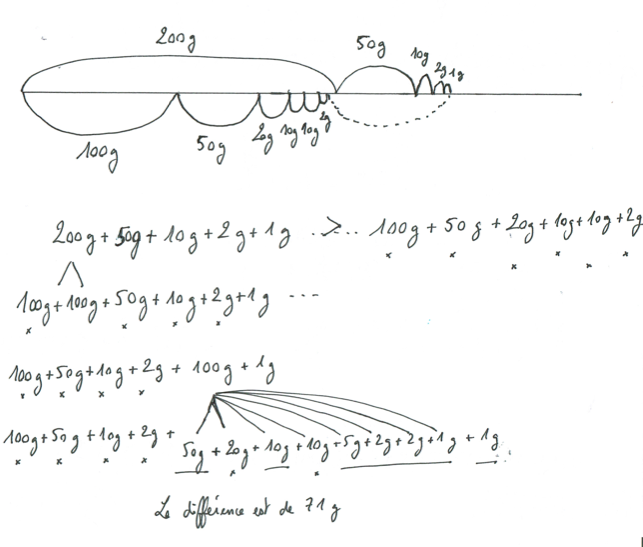 200g 50g 10g 2g 1g
100g 50g 20g 10g 10g 2g
200g + 50g + 10g + 2g + 1g ..>.. 100g + 50g + 20g + 10g + 10g + 2g
100g + 100g + 50g + 10g + 2g + 1g ...
100g + 50g + 10g + 2g + 100g + 1g
100g + 50g + 10g + 2g + 50g + 20g + 10g + 10g + 5g + 2g + 2g + 1g + 1g
La différence est de 71g